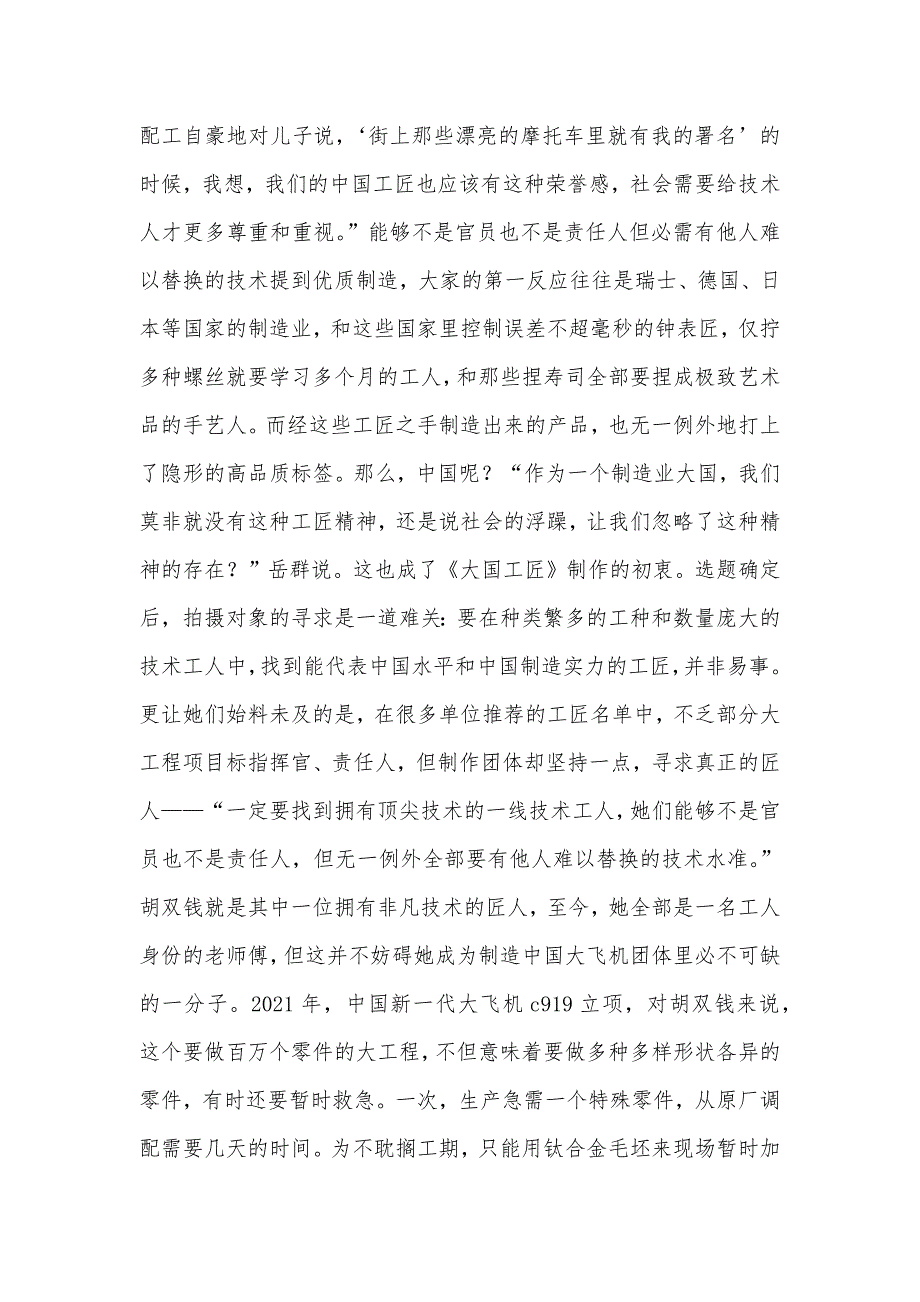 配工自豪地对儿子说，‘街上那些漂亮的摩托车里就有我的署名’的
时候，我想，我们的中国工匠也应该有这种荣誉感，社会需要给技术
人才更多尊重和重视。”能够不是官员也不是责任人但必需有他人难
以替换的技术提到优质制造，大家的第一反应往往是瑞士、德国、日
本等国家的制造业，和这些国家里控制误差不超毫秒的钟表匠，仅拧
多种螺丝就要学习多个月的工人，和那些捏寿司全部要捏成极致艺术
品的手艺人。而经这些工匠之手制造出来的产品，也无一例外地打上
了隐形的高品质标签。那么，中国呢？“作为一个制造业大国，我们
莫非就没有这种工匠精神，还是说社会的浮躁，让我们忽略了这种精
神的存在？”岳群说。这也成了《大国工匠》制作的初衷。选题确定
后，拍摄对象的寻求是一道难关：要在种类繁多的工种和数量庞大的
技术工人中，找到能代表中国水平和中国制造实力的工匠，并非易事。
更让她们始料未及的是，在很多单位推荐的工匠名单中，不乏部分大
工程项目标指挥官、责任人，但制作团体却坚持一点，寻求真正的匠
人——“一定要找到拥有顶尖技术的一线技术工人，她们能够不是官
员也不是责任人，但无一例外全部要有他人难以替换的技术水准。”
胡双钱就是其中一位拥有非凡技术的匠人，至今，她全部是一名工人
身份的老师傅，但这并不妨碍她成为制造中国大飞机团体里必不可缺
的一分子。2021 年，中国新一代大飞机 c919 立项，对胡双钱来说，
这个要做百万个零件的大工程，不但意味着要做多种多样形状各异的
零件，有时还要暂时救急。一次，生产急需一个特殊零件，从原厂调
配需要几天的时间。为不耽搁工期，只能用钛合金毛坯来现场暂时加